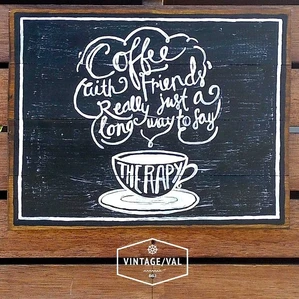 Coffee
with Friends
Really just a
long way to say
THERAPY
VINTAGE/VAL